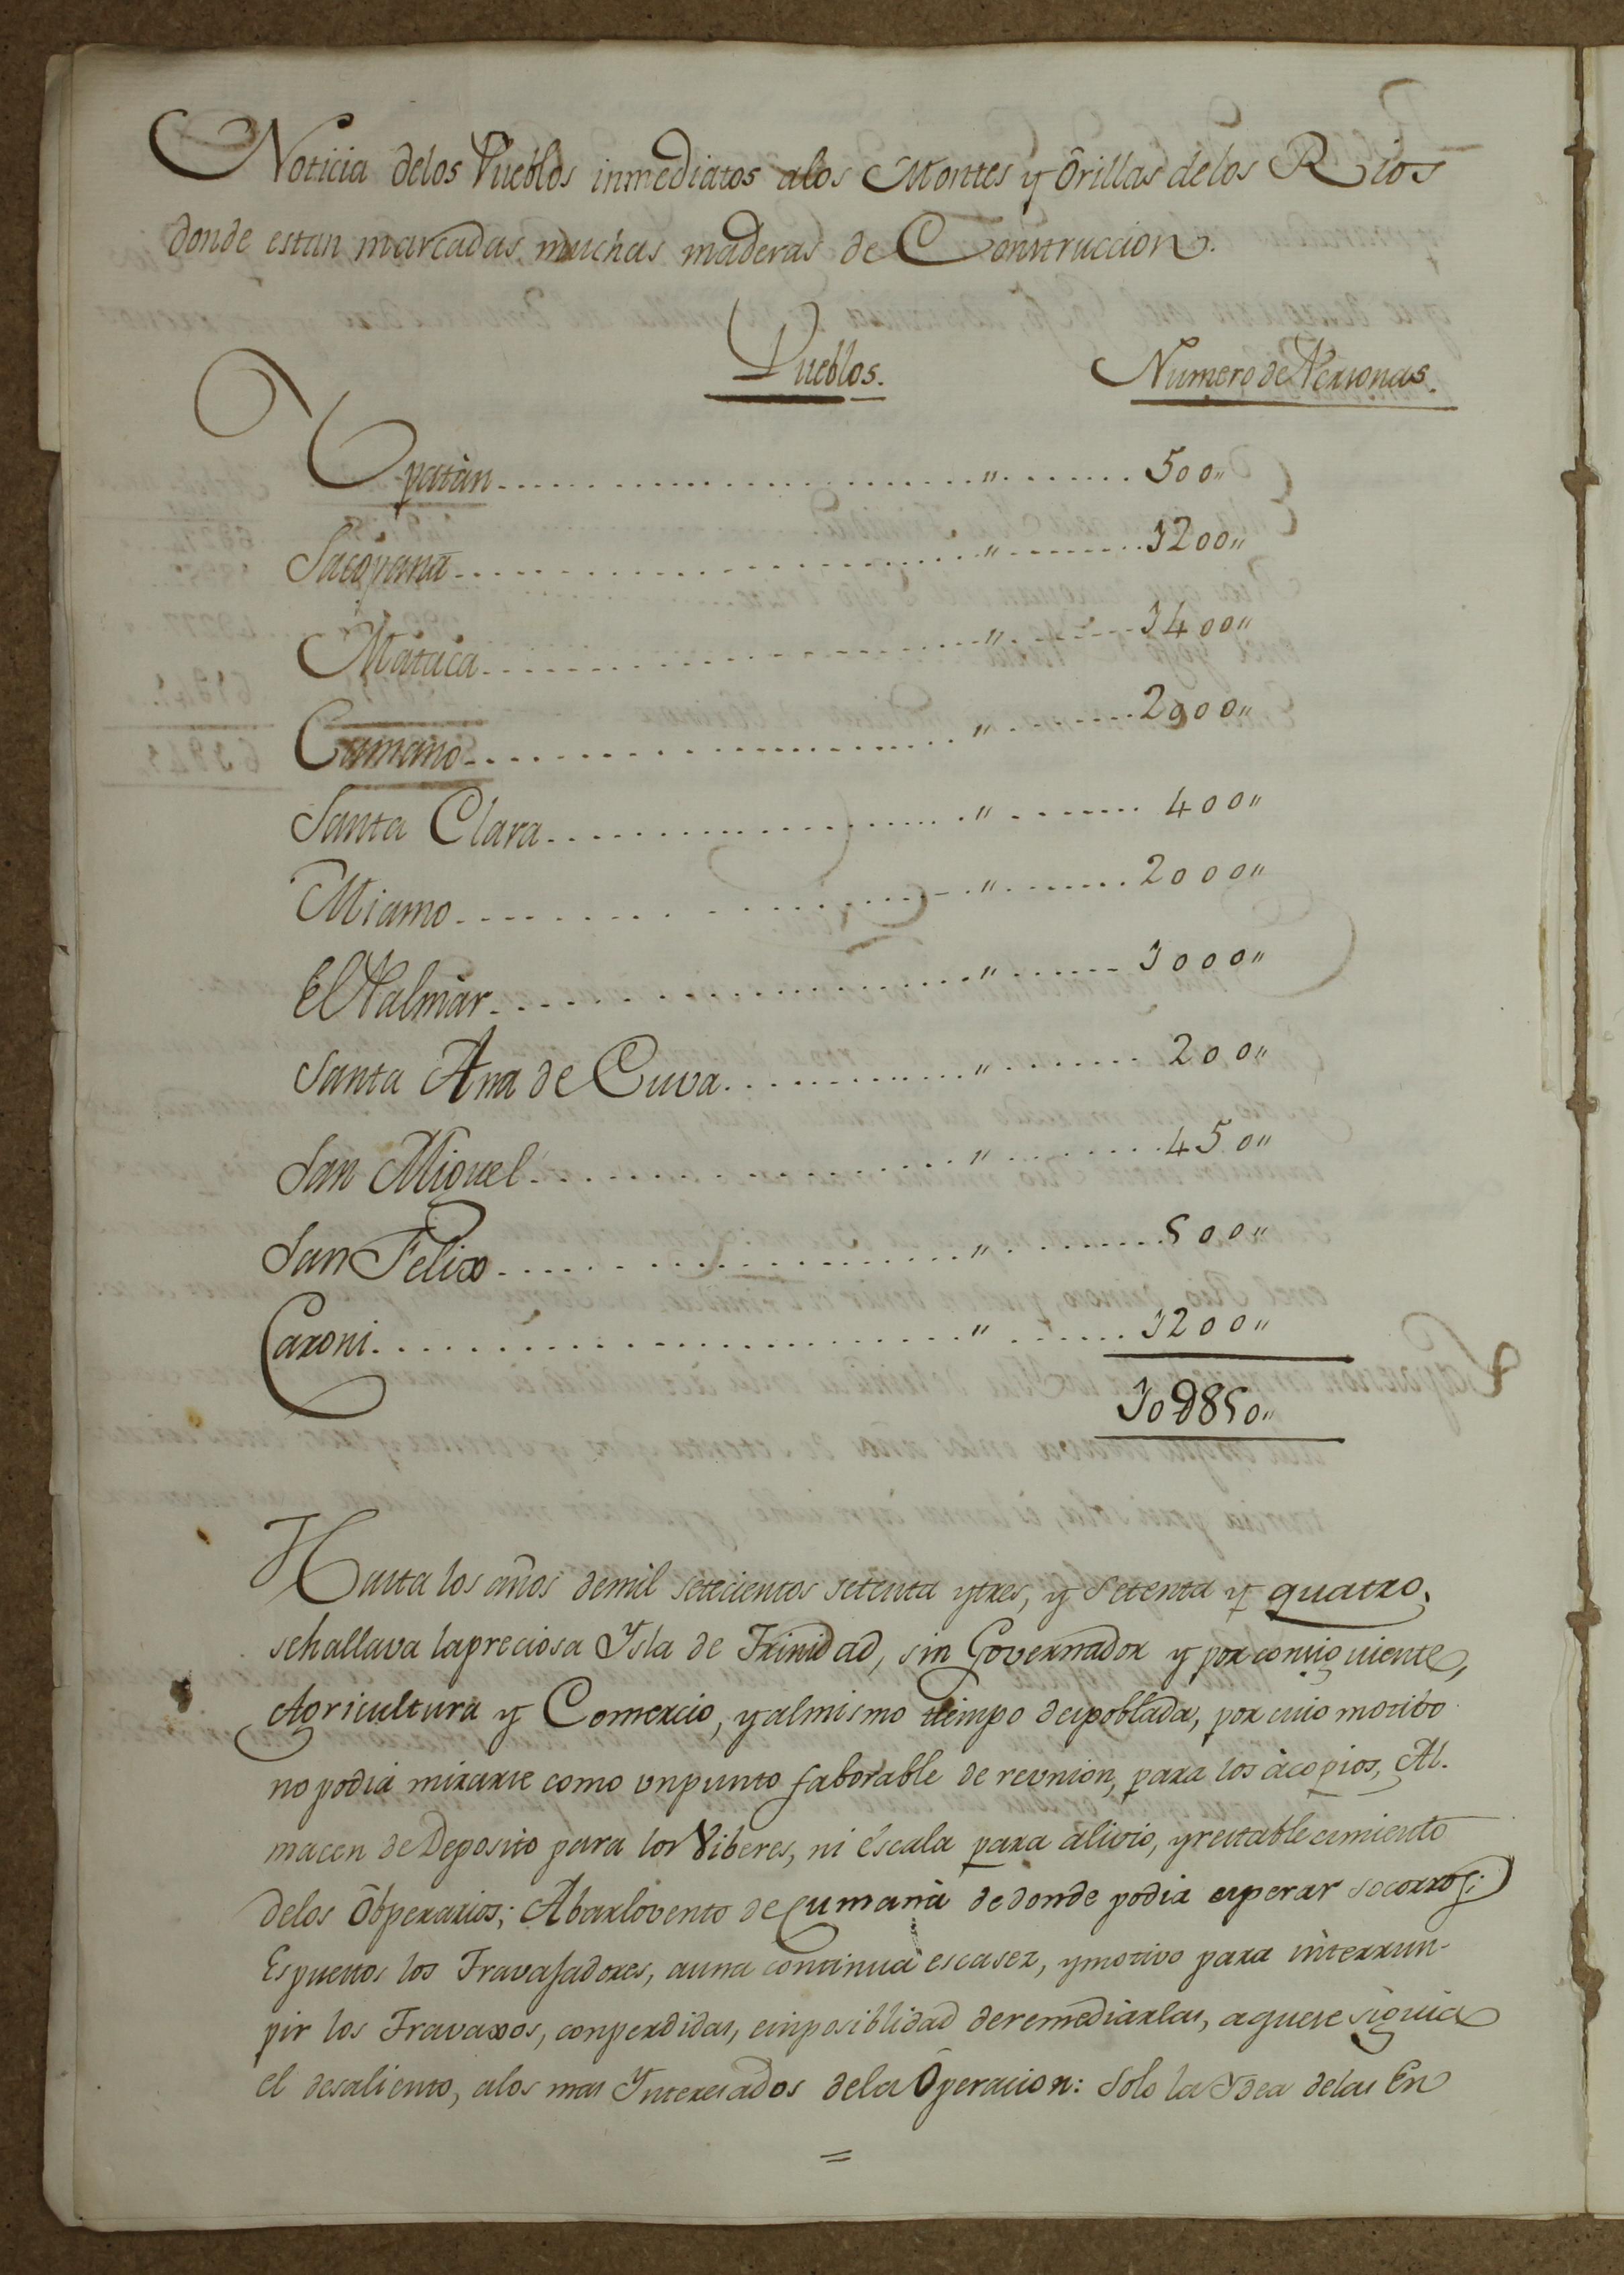 Noticia delos Pueblos inmediatos alos Montes y Orillas delos Rios
donde estan marcadas, muchas maderas de Construccion.
Pueblos. Numero de Personas.
Upatàn " 500"
Sacoyana " 1200"
Mataca " 1400"
Camamo " 2000"
Santa Clara " 400"
Miamo " 2000"
El Palmàr " 1000"
Santa Ana de Cuva " 200"
San Miguel " 450"
San Felix " 500"
Caroni " 1200"
10 D850"
Hasta los años demil setecientos setenta ytres, y Setenta y quatro,
sehallava lapreciosa Ysla de Trinidad, sin Governador y por consiguiente,
Agricultura y Comercio, yalmismo tiempo despoblada, por cuio motibo
no podia mirarse como unpunto faborable de reunion, para los àcopios, Al-
macen de Deposito para los Viberes, ni èscala para alivio, yrestablecimiento
delos Obperarios; Abarlovento de Cumanà dedonde podia esperar socorros;
Espuestos los Travajadores, auna continua escasez, ymotivo para interrun-
pir los Travaxos, conperdidas, einposiblidad deremediarlas, aquese siguia
el desaliento, alos mas Ynteresados dela Operacion: Solo la Ydea delas En
=